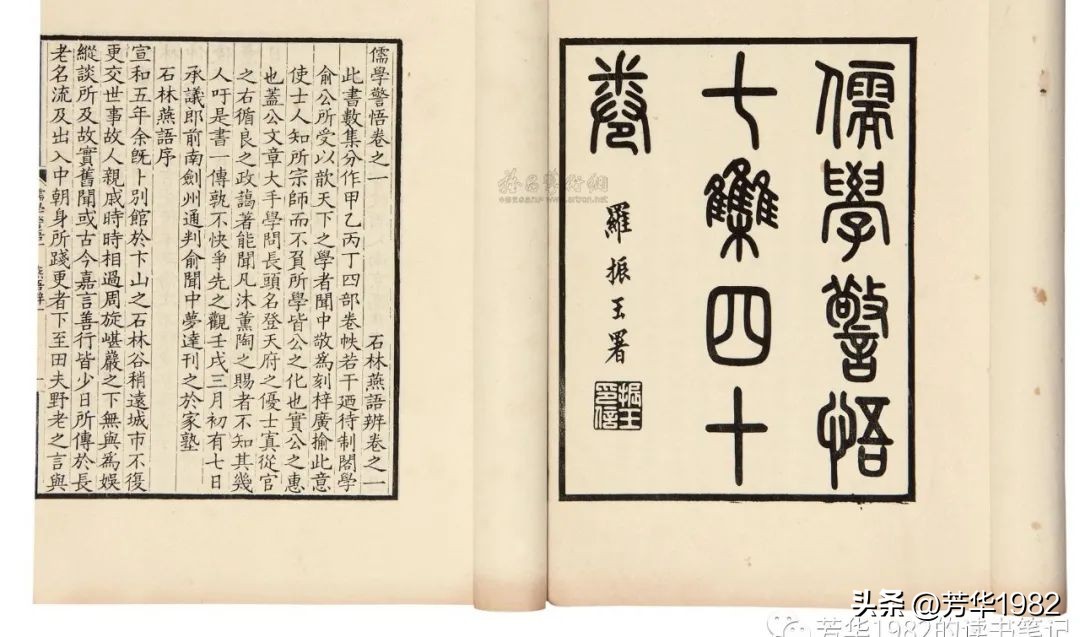 儒學警悟
七集四十
卷
羅振玉署
振玉印信
儒學警悟卷之一 石林燕語辨卷之一
此書數集分作甲乙丙丁四部卷帙若干廼待制閣學
俞公所受以歆天下之學者聞中敬為刻梓廣揄此意
使士人知所宗師而不負所學皆公之化也實公之惠
也蓋公文章大手學問長頭名登天府之優士真從官
之右循良之政謁著能聞凡沐薰陶之賜者不知其幾
人吁是書一傳孰不快爭先之觀壬戌三月初有七日
承議郎前南劍州通判俞聞中夢達刊之於家塾
石林燕語序
宣和五年余旣卜別館於卞山之石林谷稍遠城市不復
更交世事故人親戚時時相過周旋嵁巖之下無與為娛
縱談所及故實舊聞或古今嘉言善行皆少日所傳於長
老名流及出入中朝身所踐更者下至田夫野老之言與
雅昌藝術網
www.artron.net
头条 @芳华1982
芳华1982的读书笔记